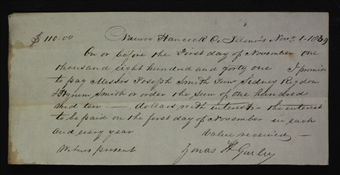 $ 110.00 Nauvoo Hancock Co. Illinois Nov. 1. 1839
On or before the first day of November one
thousand eight hundred and forty one I promise
to pay Messrs Joseph Smith Junr Sidney Rigdon
Hyrum Smith or order the sum of one hundred
and ten — dollars with interest — the interest
to be paid on the first day of November in each
and every year value received —
Witness present
Jonas